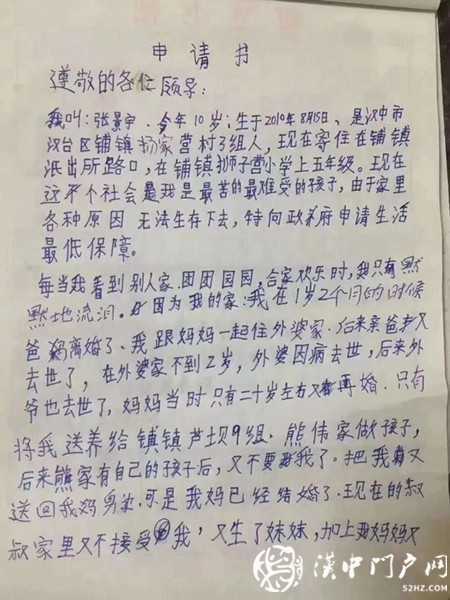 申请书
遵敬的各位领导:
我叫:张景宇.今年10岁;生于2010年8月15日、是汉中市
汉台区铺镇杨家营村3组人,现在寄住在铺镇
派出所路口,在铺镇狮子营小学上五年级。现在
这个社会是我是最苦的最难受的孩子,由于家里
各种原因无法生存下去,特向政府申请生活
最低保障。
每当我看到别人家.团团园园,合家欢乐时,我只有默
默地流泪。因为我的家:我在1岁2个月的时候
爸妈离婚了、我跟妈妈一起住外婆家.后来亲爸爸又
去世了,在外婆家不到2岁,外婆因病去世,后来外
爷也去世了,妈妈当时只有二十岁左右又再婚.只有
将我送养给铺镇芦坝9组.熊伟家做孩子,
后来熊家有自己的孩子后,又不要我了。把我又
送回我妈身边.可是我妈已经结婚了.现在的叔
叔家里又不接受我,又生了妹妹,加上我妈妈又
汉中门户网
52HZ.COM